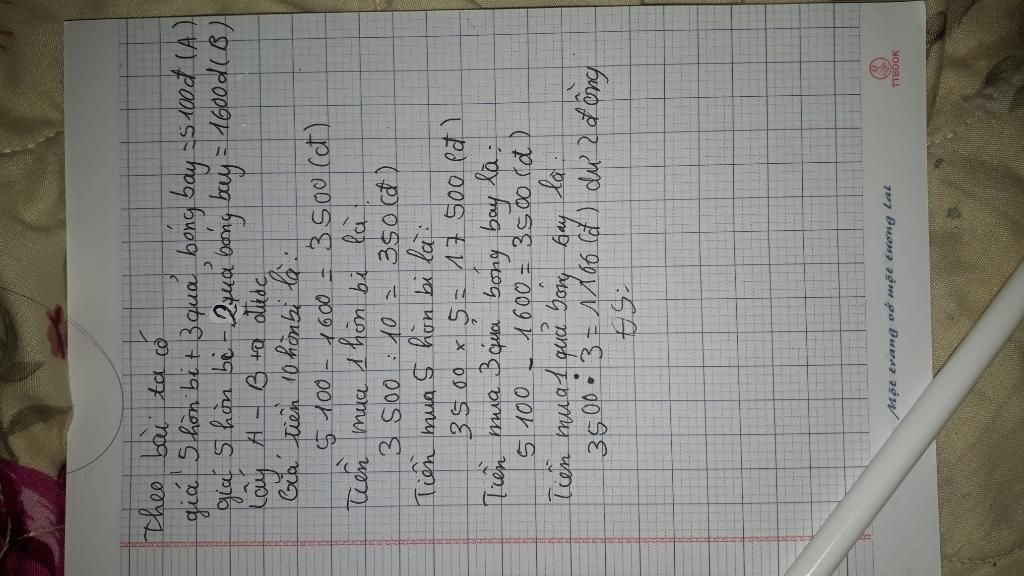 Theo bài ta có
giá 5 hòn bi + 3 quả bóng bay = 5100đ (A)
giá 5 hòn bi - 2 quả bóng bay = 1600đ (B)
Lấy A - B ta được
Giá tiền 10 hòn bi là:
5 100 - 1600 = 3500 (đ)
Tiền mua 1 hòn bi là:
3 500 : 10 = 350 (đ)
Tiền mua 5 hòn bi là:
3500 x 5 = 17 500 (đ)
Tiền mua 3 quả bóng bay là:
5 100 - 1600 = 3500 (đ)
Tiền mua 1 quả bóng bay là:
3500 : 3 = 1166 (đ) dư 2 đồng
ĐS:
Một trang vở một tương lai
TTBOOK